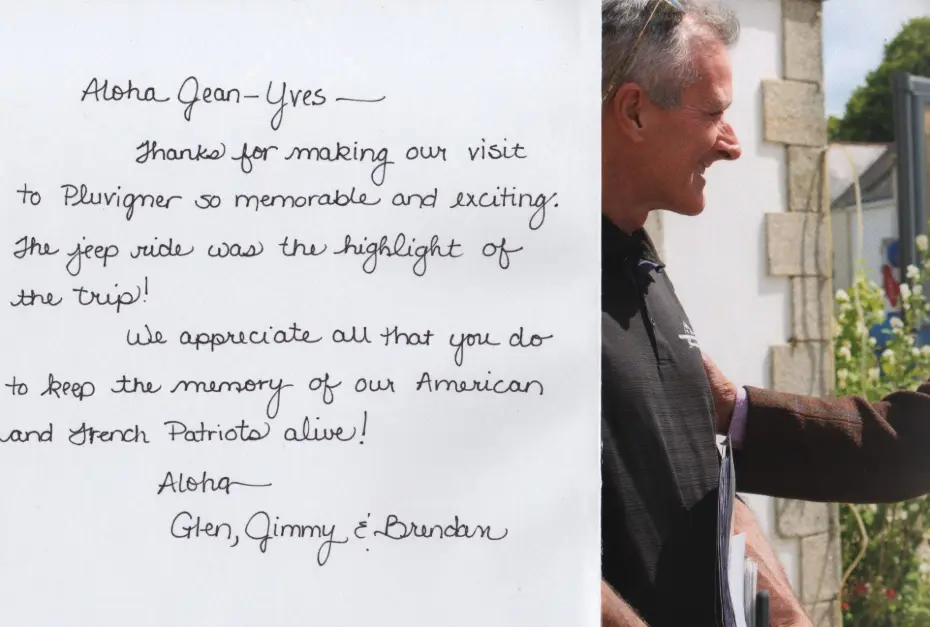 Aloha Jean-Yves —
Thanks for making our visit
to Pluvigner so memorable and exciting.
The jeep ride was the highlight of
the trip!
We appreciate all that you do
to keep the memory of our American
and French Patriots alive!
Aloha —
Glen, Jimmy & Brendan